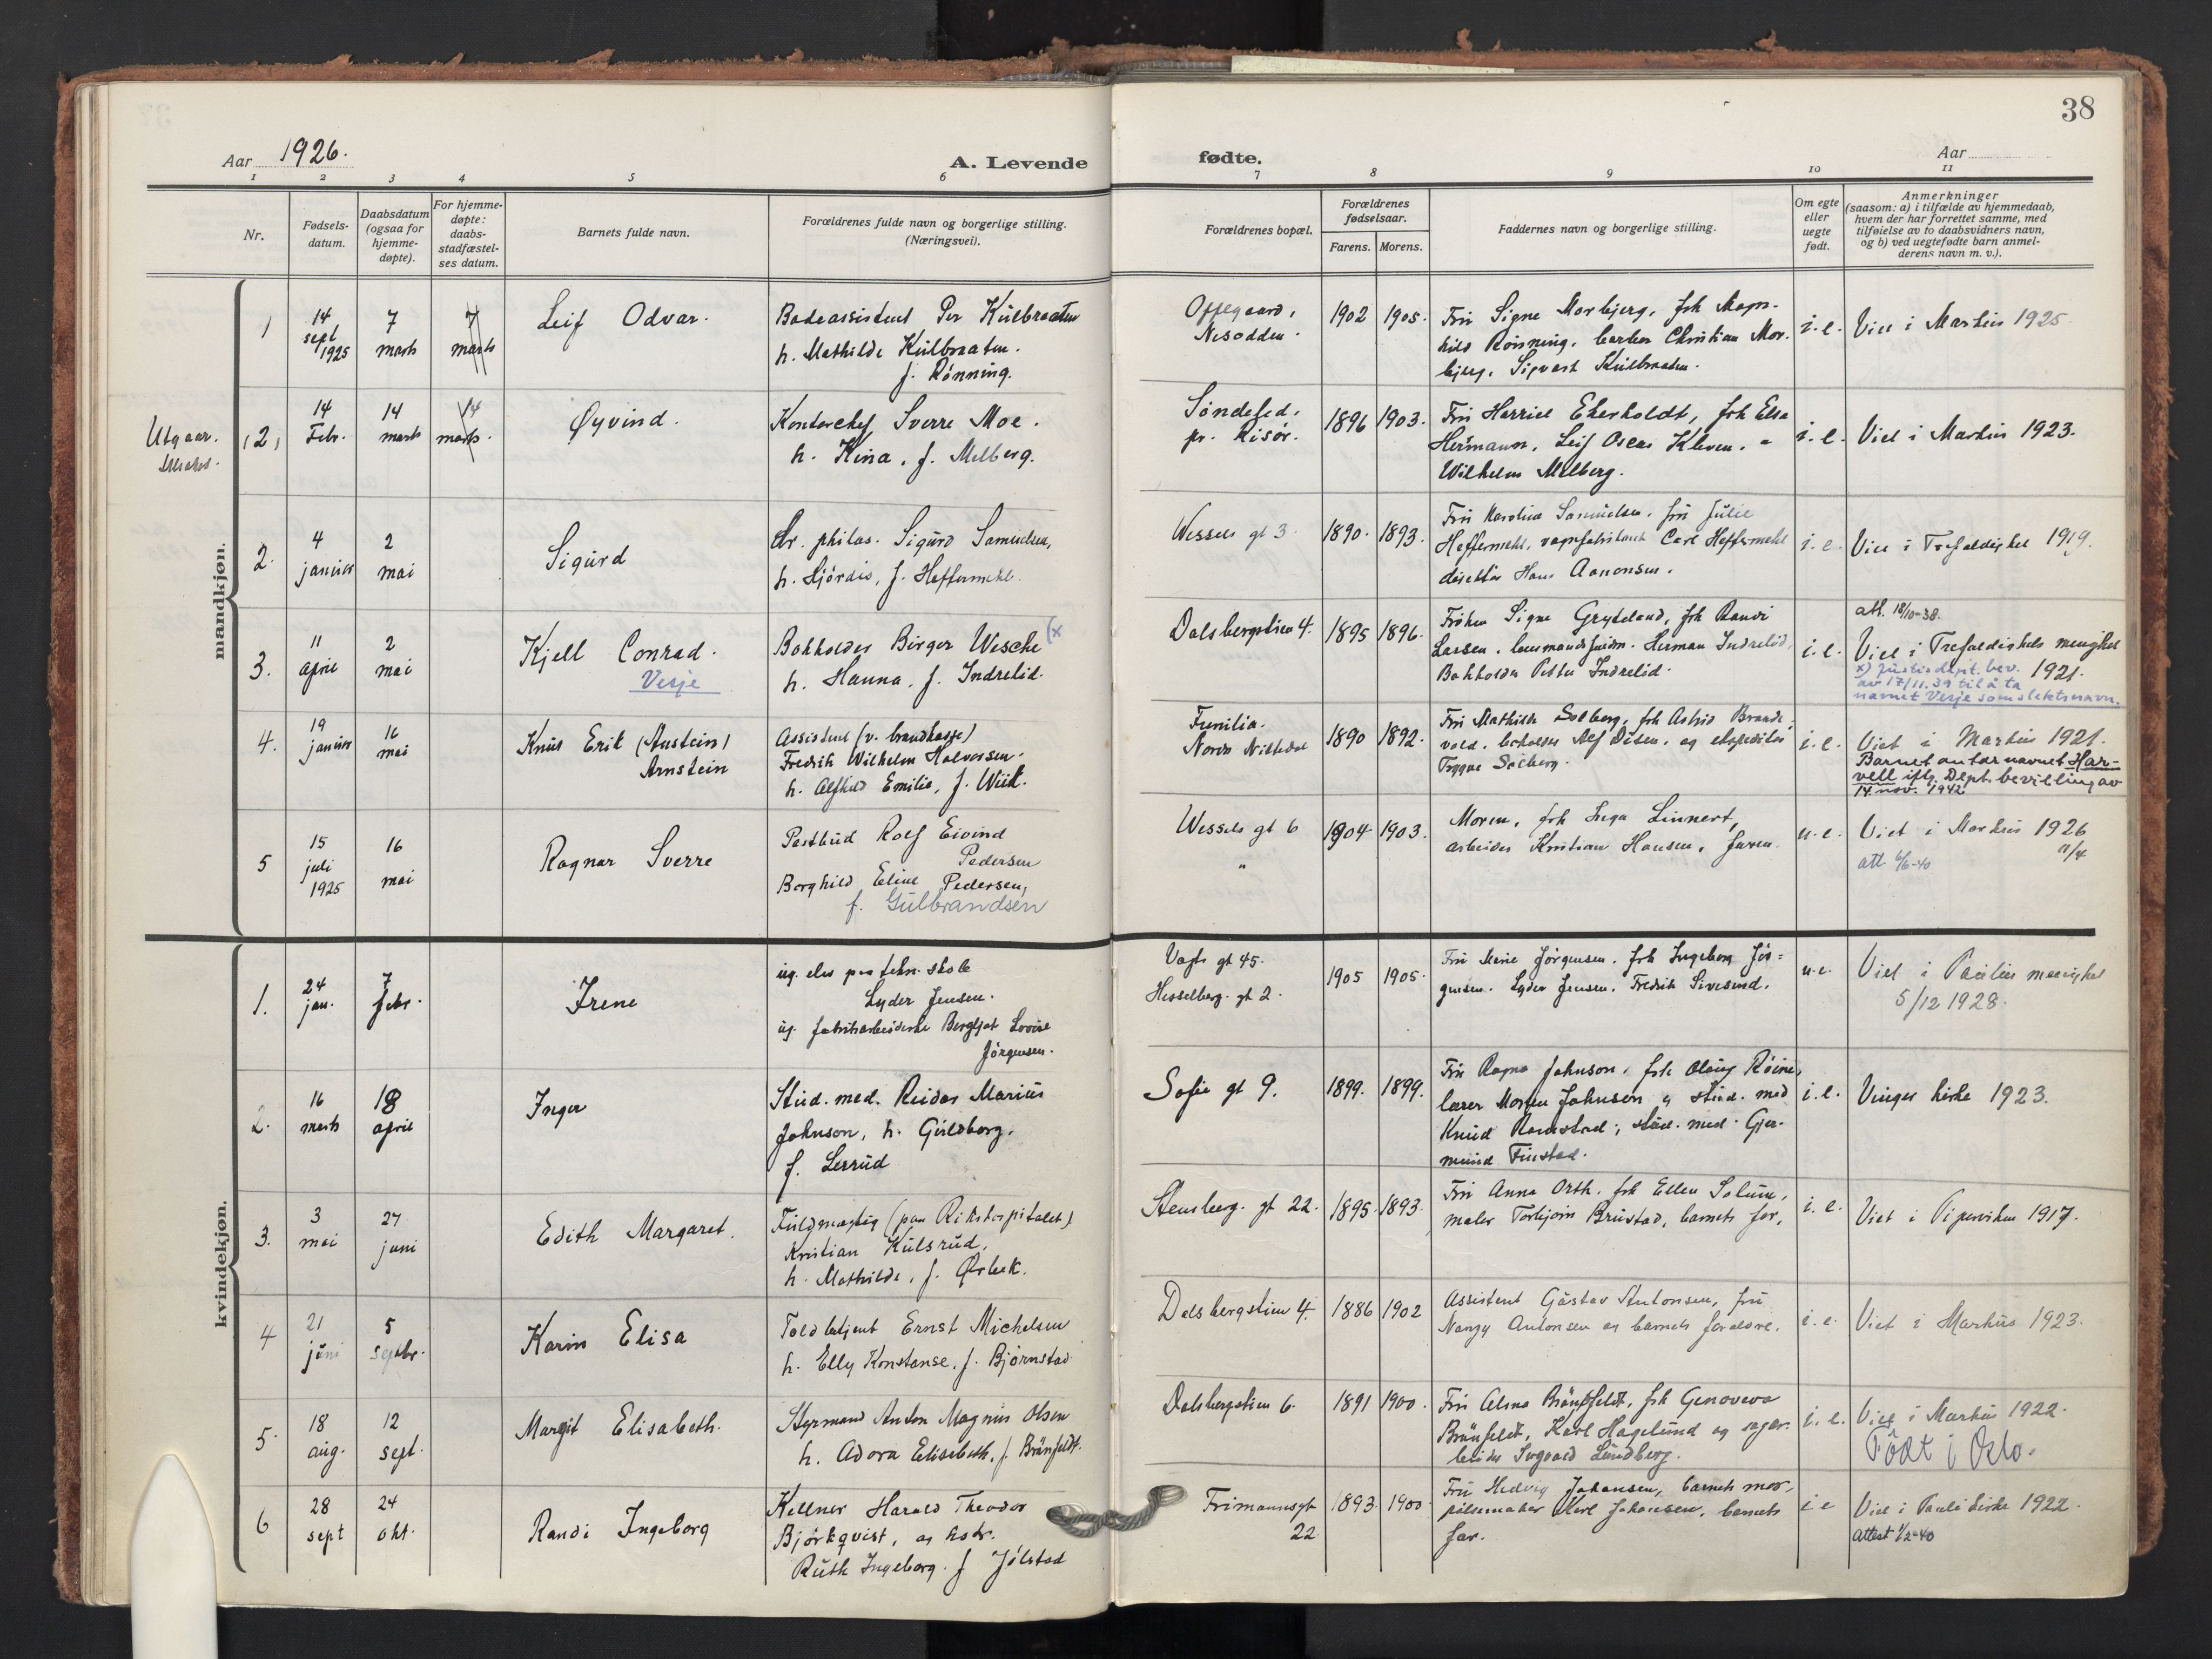 38
Aar 1926.
A. Levende
fødte.
Aar
1 2 3 4 5 6 7 8 9 10 11
Nr.
Fødsels-
datum.
Daabsdatum
(ogsaa for
hjemme-
døpte).
For hjemme-
døpte:
daabs-
stadfæstel-
ses datum.
Barnets fulde navn.
Forældrenes fulde navn og borgerlige stilling.
(Næringsvei).
Forældrenes bopæl.
Forældrenes
fødselsaar.
Farens. Morens.
Faddernes navn og borgerlige stilling.
Om egte
eller
uegte
født.
Anmerkninger
(saasom: a) i tilfælde av hjemmedaab,
hvem der har forrettet samme, med
tilføielse av to daabsvidners navn,
og b) ved uegtefødte barn anmel-
derens navn m. v.).
mandkjøn.
1
14
sept
1925
7
marts
7
marts
Leif Odvar.
Badeassistent Per Külbraaten
h. Mathilde Külbraaten.
f. Rönning.
Oppegaard,
Nesodden.
1902 1905.
Fru Signe Morbjerg, frk Magn-
hild Rönning, barber Christian Mor-
bjerg, Sigvart Külbraaten.
i.e.
Viet i Markus 1925
Utgaar.
(2)
14
Febr.
14
marts
14
marts.
Øyvind.
Kontorchef Sverre Moe.
h. Kina, f. Melberg.
Søndeled,
pr. Risør.
1896 1903.
Fru Harriet Ekerholdt, frk Elsa
Hermann, Leif Oscar Kleven,
Wilhelm Melberg.
i.e.
Viet i Markus 1923.
2.
4
januar
2
mai
Sigurd
Dr. philos. Sigurd Samuelsen,
h. Hjördis, f. Heffermehl.
Wessels gt 3.
1890. 1893.
Fru Karoline Samuelsen, fru Julie
Heffermehl, vognfabrikant Carl Heffermehl
direktör Hans Aanonsen.
i.e.
Viet i Trefoldighet 1919.
3.
11
april
2
mai
Kjell Conrad.
Vesje
Bokholder Birger Wesche (x
h. Hanna, f. Indrelid.
Dalsbergstien 4.
1895 1896.
Fröken Signe Gryteland, frk Randi
Larsen, lensmandsfuldm. Herman Indrelid,
Bokholder Petter Indrelid.
i.e.
att. 18/10-38.
Viet i Trefoldighets menighet
1921.
x) Justisdept. bev.
av 17/11.39 til å ta
navnet Vesje som slektsnavn.
4.
19
januar
16
mai
Knut Erik (Austein)
Arnstein
Assistent (v. brandkasse)
Fredrik Wilhelm Halvorsen.
h. Alfhild Emilie, f. Wiik.
Nordre Nittedal
1890 1892.
Fru Mathilde Solberg, frk Astrid Brande-
vold, bokholder Alf Disen, og ekspeditör
Trygve Solberg.
i.e.
Viet i Markus 1921.
Barnet antar navnet Har-
vell iflg. Dept. bevilling av
14. nov. 1942
5
15
juli
1925
16
mai
Ragnar Sverre
Postbud Rolf Eivind
Pedersen
Borghild Eline Pedersen,
f. Gulbrandsen
Wessels gt 6
"
1904 1903.
Moren, frk Inga Linnert,
arbeider Kristian Hansen, faren.
u.e.
Viet i Markus 1926
11/4
att. 6/6-40
kvindekjøn.
1.
24
jan.
7
febr.
Irene
ug. elev paa tekn. skole
Lyder Jensen.
ug. fabrikarbeiderske Bergljot Lovise
Jörgensen.
Vogts gt 45.
Hesselberg. gt 2.
1905 1905.
Fru Marie Jörgensen, frk Ingeborg Jör-
gensen, Lyder Jensen, Fredrik Sivesind.
u.e.
Viet i Paulus menighet
5/12 1928.
2.
16
marts
18
april
Inger
Stud. med. Reidar Marius
Johnson, h. Guldborg,
f. Lerrud
Sofie gt 9.
1899. 1899.
Fru Ragna Johnson, frk Olaug Röine,
lærer Morten Johnson og stud. med
Knud Ramstad, stud. med. Gjer-
mund Finstad.
i.e.
Vinger kirke 1923.
3.
3
mai
27
juni
Edith Margaret.
Fuldmægtig (paa Rikshospitalet)
Kristian Kulsrud,
h. Mathilde, f. Ørbek.
Stensberg. gt 22.
1895. 1893.
Fru Anna Orth, frk Ellen Solum,
maler Torbjörn Brustad, barnets far.
i.e.
Viet i Piperviken 1917.
4
21
juni
5
septbr.
Karin Elisa
Toldbetjent Ernst Michelsen
h. Elly Konstanse, f. Björnstad
Dalsbergstien 4.
1886 1902
Assistent Gustav Antonsen, fru
Nanzy Antonsen og barnets forældre.
i.e.
Viet i Markus 1923.
5
18
aug.
12
sept.
Margit Elisabeth.
Styrmand Anton Magnus Olsen
h. Adora Elisabeth, f. Brünfeldt.
Dalsbergstien 6.
1891 1900.
Fru Alma Brünfeldt, frk Genoveva
Brünfeldt, Karl Hagelund og sagar-
beider Ingvald Lundberg.
i.e.
Viet i Markus 1922.
Født i Oslo.
6
28
sept
24
okt.
Randi Ingeborg
Kellner Harald Theodor
Björkqvist, og hstr.
Ruth Ingeborg f Jölstad
Frimannsgt
22
1893. 1900.
Fru Hedvig Johansen, barnets mor,
pølsemaker Karl Johansen, barnets
far.
i e
Viet i Pauls kirke 1922.
attest 1/2-40